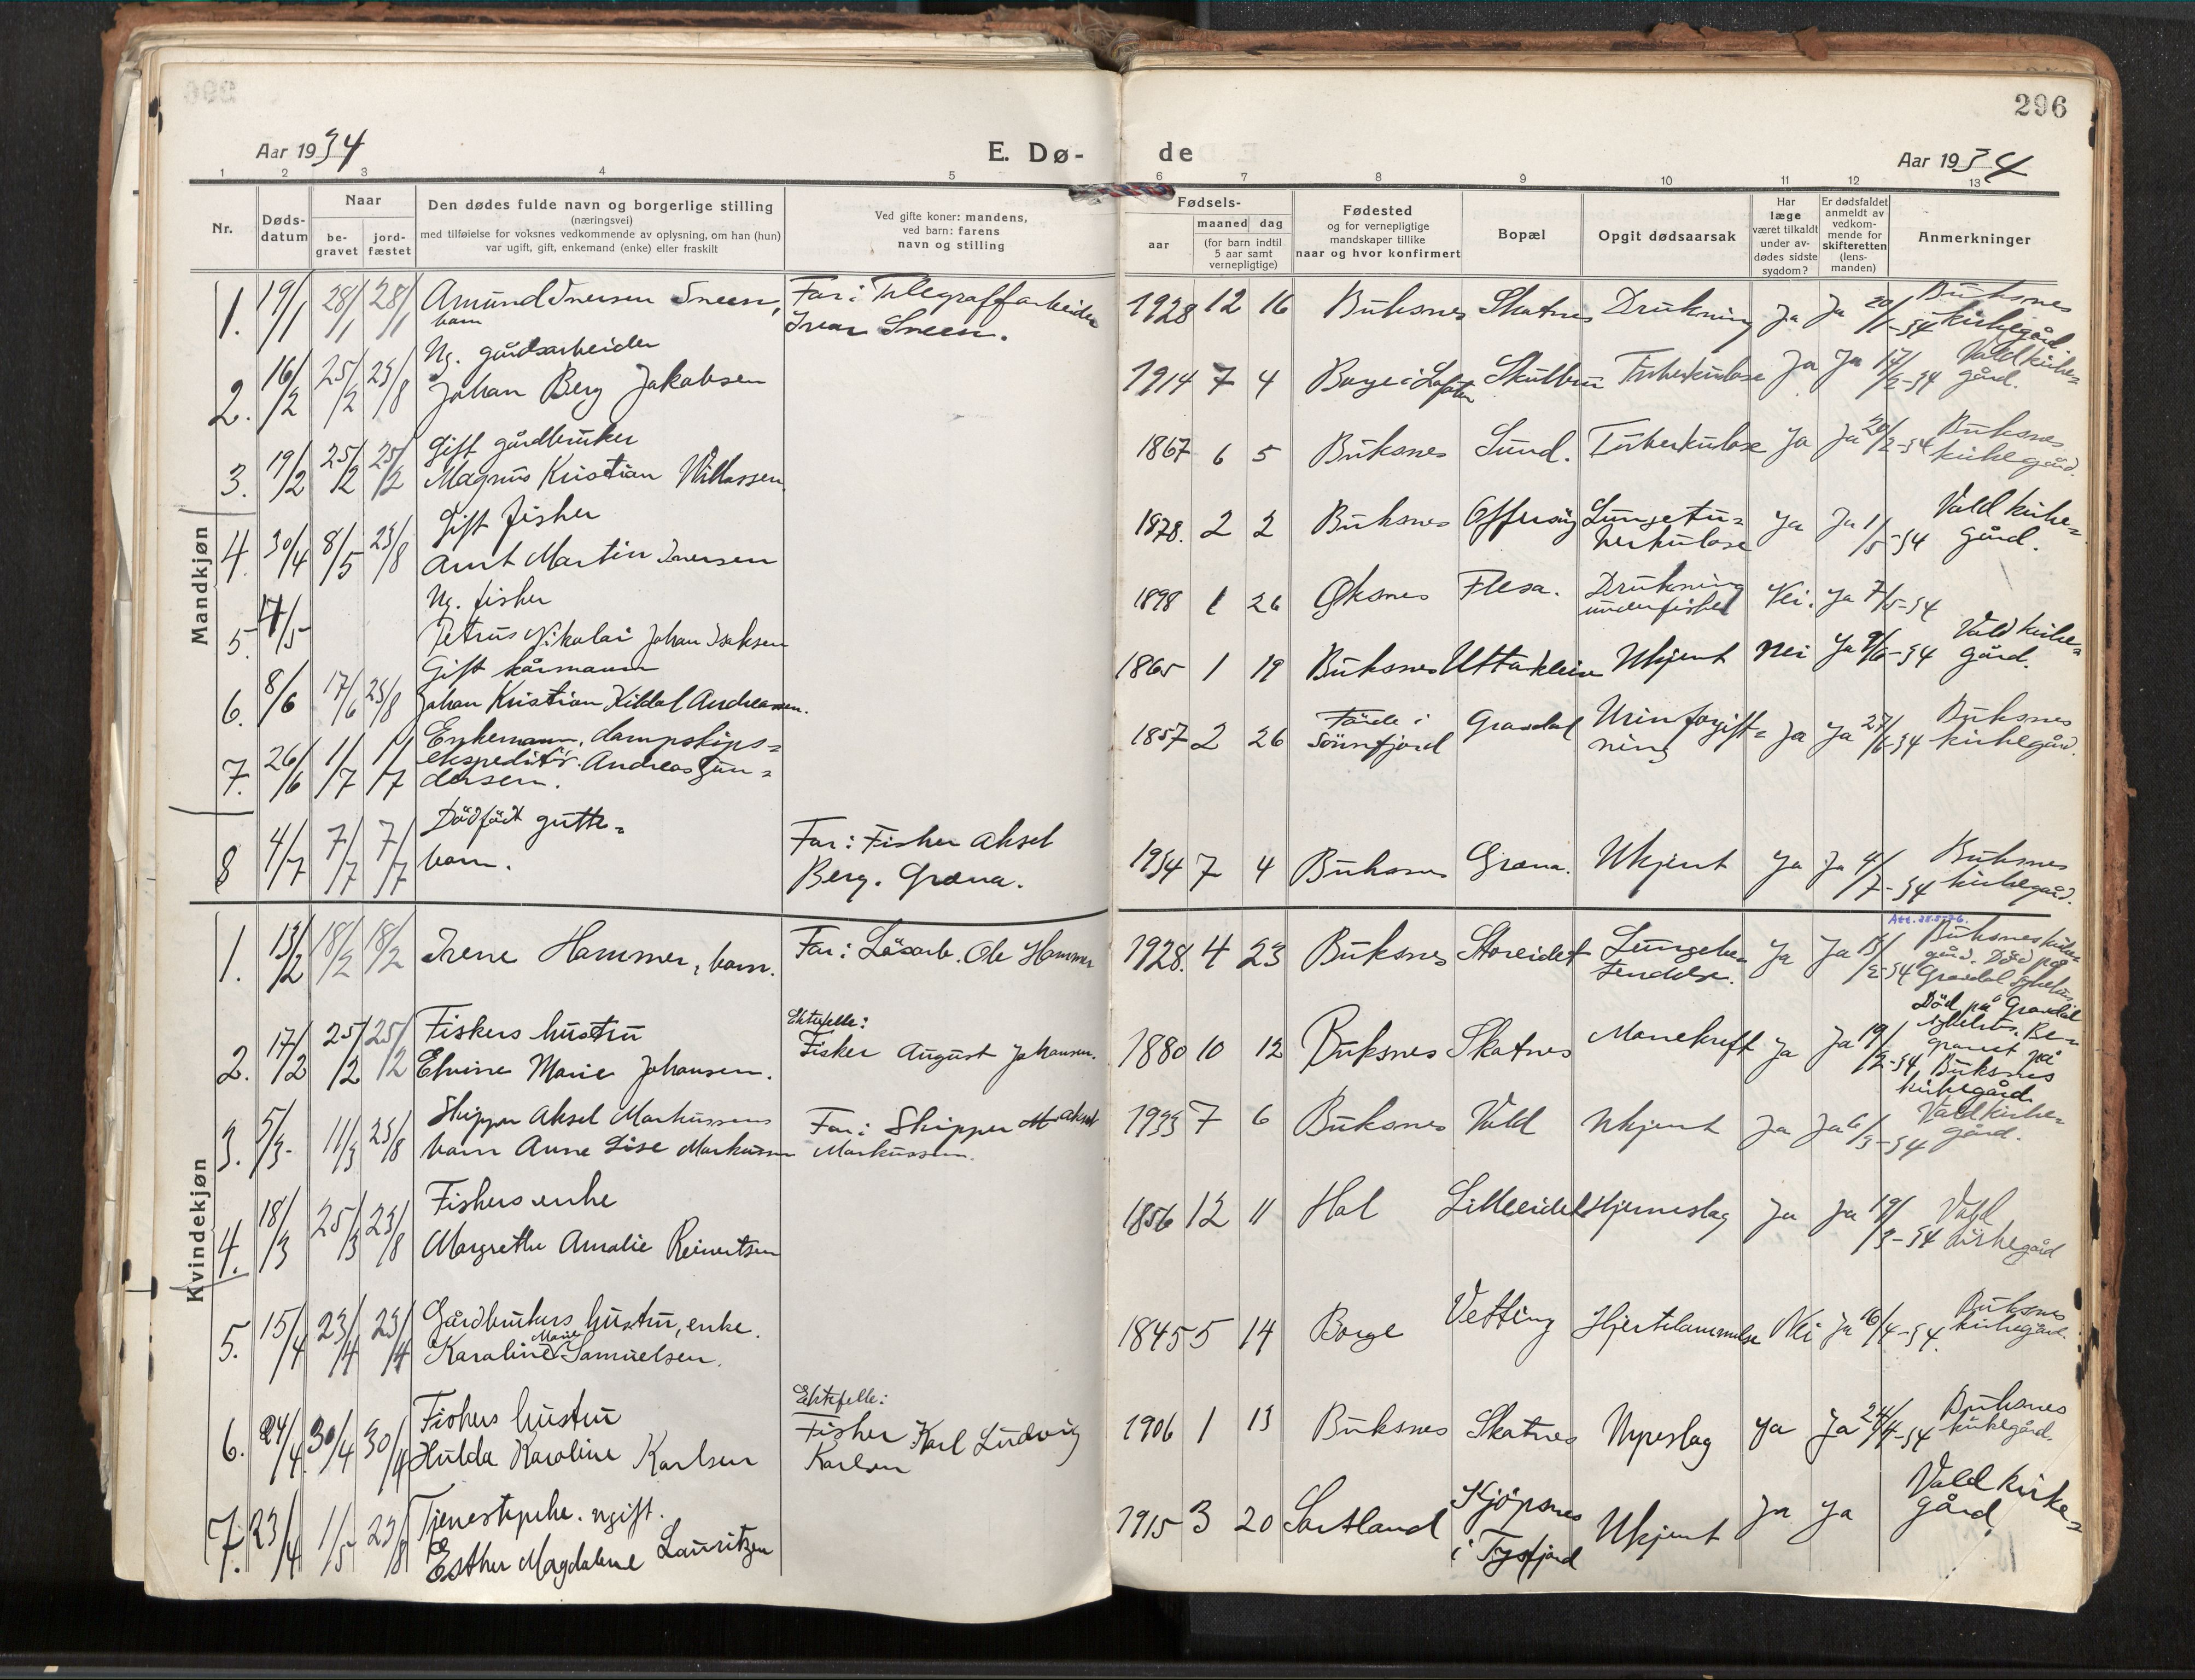 296
Aar 1934
E. Dø-
de
Aar 1934
1 2 3 4 5
6 7 8 9 10 11 12 13
Nr.
Døds-
datum
Naar
be-
gravet
jord-
fæstet
Den dødes fulde navn og borgerlige stilling
(næringsvei)
med tilføielse for voksnes vedkommende av oplysning, om han (hun)
var ugift, gift, enkemand (enke) eller fraskilt
Ved gifte koner: mandens,
ved barn: farens
navn og stilling
Fødsels-
aar
maaned dag
(for barn indtil
5 aar samt
vernepligtige)
Fødested
og for vernepligtige
mandskaper tillike
naar og hvor konfirmert
Bopæl
Opgit dødsaarsak
Har
læge
været tilkaldt
under av-
dødes sidste
sygdom?
Er dødsfaldet
anmeldt av
vedkom-
mende for
skifteretten
(lens-
manden)
Anmerkninger
Mandkjøn
1. 19/1 28/1 28/1 Amund Iversen Sneen,
barn
Far: Telegrafarbeider
Ivar Sneen.
1928 12 16 Buksnes Skatnes Drukning Ja Ja 20/1-34 Buksnes
kirkegård
2. 16/2 25/2 23/8 Ug. gårdsarbeider
Johan Berg Jakobsen
1914 7 4 Borge i Lofoten Skulbru Tuberkulose Ja Ja 17/2-34 Vald kirke=
gård.
3. 19/2 25/2 25/2 Gift gårdbruker
Magnus Kristian Wikassen
1867 6 5 Buksnes Sund. Tuberkulose Ja Ja 20/2-34 Buksnes
kirkegård.
4. 30/4 8/5 23/8 Gift fisker
Arnt Martin Iversen
1878. 2 2 Buksnes Offersøy Lungetu=
berkulose Ja Ja 1/5-34 Vald kirke=
gård.
5. 7/5 Ug. fisker
Petrus Nikolai Johan Isaksen
1898 1 26 Øksnes Flesa. Drukning
under fisket Nei. Ja 7/5-34
6. 8/6 17/6 23/8 Gift kårmann
Johan Kristian Kildal Andreassen.
1865 1 19 Buksnes Uttakleiv Ukjent Nei Ja 9/6-34 Vald kirke=
gård.
7. 26/6 1/7 1/7 Enkemann, dampskips=
ekspeditør. Andreas Gun=
dersen.
1857 2 26 Førde i
Sönnfjord Gravdal Urinforgift=
ning Ja Ja 27/6-34 Buksnes
kirkegård.
8 4/7 7/7 7/7 Dödfödt gutte=
barn.
Far: Fisker Aksel
Berg. Græna.
1934 7 4 Buksnes Græna. Ukjent Ja Ja 4/7-34 Buksnes
kirkegård.
Kvindekjøn
1. 13/2 18/2 18/2 Irene Hammer, barn.
Far: Løsarb. Ole Hammer
1928. 4 23 Buksnes Storeidet Lungebe=
tendelse. Ja Ja 15/2-34 Buksnes kirke=
gård. Død på
Gravdal sykehus
2. 17/2 25/2 25/2 Fiskers hustru
Elvine Marie Johansen.
Ektefelle:
Fisker August Johansen.
1880 10 12 Buksnes Skatnes Mavekreft Ja Ja 19/2-34 Död på Gravdal
sykehus. Be=
gravet på
Buksnes
kirkegård.
3. 5/3 11/3 23/8 Skipper Aksel Markussens
barn Anne Lise Markussen
Far: Skipper Aksel
Markussen.
1933 7 6 Buksnes Vald Ukjent Ja Ja 6/3-34 Vald kirke=
gård.
4. 18/3 25/3 23/8 Fiskers enke
Margrethe Amalie Reinertsen
1856 12 11 Hol Lilleeidet Hjerneslag Ja Ja 19/3-34 Vald
kirkegård
5. 15/4 23/4 23/4 Gårdbrukers hustru, enke.
Karoline Marie Samuelsen.
1845 5 14 Borge Vetting Hjertelammelse Nei Ja 16/4-34. Buksnes
kirkegård.
6. 24/4 30/4 30/4 Fiskers hustru
Hulda Karoline Karlsen
Ektefelle:
Fisher Karl Ludvig
Karlsen
1906 1 13 Buksnes Skatnes Nyreslag Ja Ja 24/4-34 Buksnes
kirkegård.
7. 23/4 1/5 23/8 Tjenestepike. ugift.
Esther Magdalene Lauritzen
1915 3 20 Sortland Kjöpsnes
i Tysfjord Ukjent Ja Ja Vald kirke=
gård.